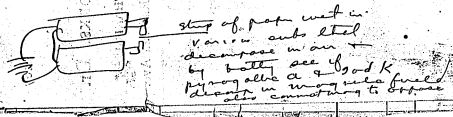 strip of paper wet in
various subs that
decompose in air &
by batty see if
pyrogallic a & Iod K
decomp in magnetic field
also connecting to oppose